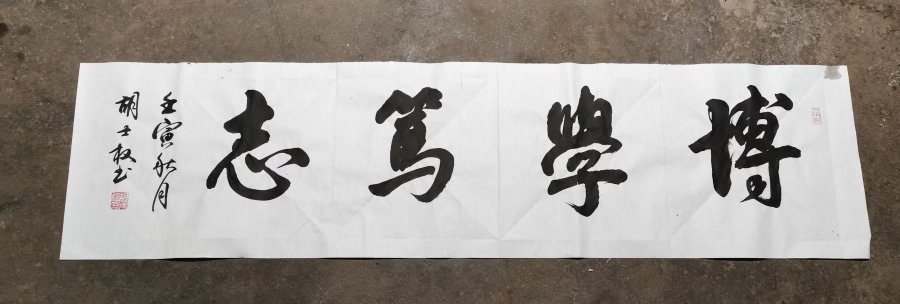 博學篤志
壬寅秋月
胡士权书